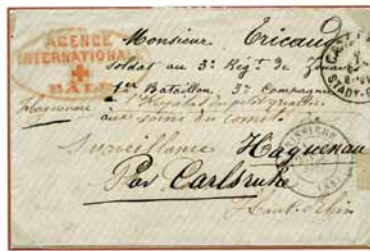 AGENCE
INTERNATIONAL
BALE
Monsieur Ericaud
soldat au 3e Régt de Zouaves
1er Bataillon, 3e Compagnie
Haguenau à l'Hopital du petit
aux soins du comité
Surveillance Haguenau
Par Carlsruhe
Haut-Rhin